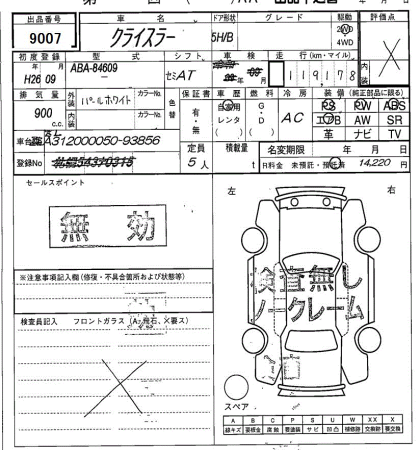 出品番号
9007
車名
クライスラー
ドア形状
5H/B
グレード
駆動
2WD
4WD
評価点
内装
初度登録
H26 09
型式
ABA-84609
シフト
セミAT
車検
走行(km・マイル)
119178
排気量
900
c.c.
外装
パールホワイト
カラーNo.
内装
カラーNo.
色替
保証書
有・無
車歴
自家用
レンタ
燃料
G・D
冷房
AC
装備(純正部品に限る)
PS PW ABS
エアB AW SR
革 ナビ TV
車台No
ZFA312000050-93856
登録No
定員
5人
積載量
t
名変期限 年 月 日
R料金 未預託・預託済 14,220円
セールスポイント
無効
※注意事項記入欄(修復・不具合箇所および状態等)
検査員記入 フロントガラス(A、飛石、X要ス)
左
右
検査無し
ノークレーム
スペア
A B C P S U W X XX
線キズ 要板金 腐蝕 要塗装 サビ 凹凸 補修跡 交換跡 要交換